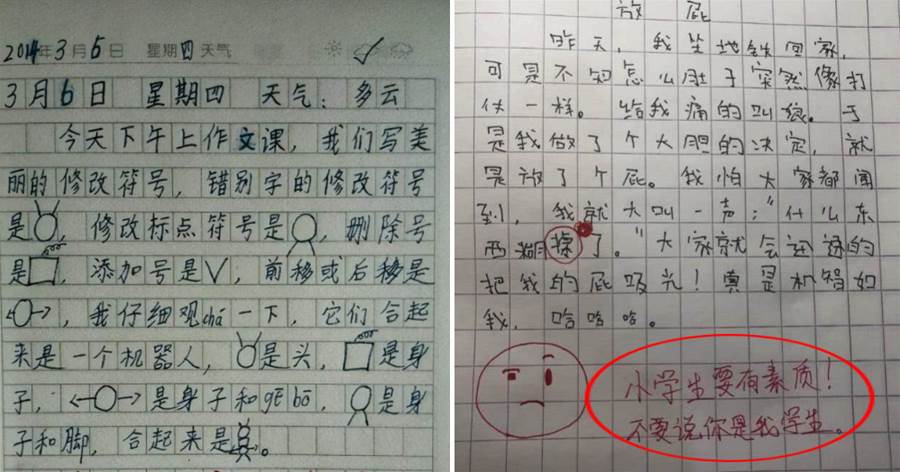 2014年3月6日 星期四 天气
3月6日 星期四 天气：多云
今天下午上作文课，我们写美
丽的修改符号，错别字的修改符号
是，修改标点符号是，删除号
是，添加号是V，前移或后移是
，我仔细观chá一下，它们合起
来是一个机器人，是头，是身
子，是身子和gē bō，是身
子和脚，合起来是。
放屁
昨天，我坐地铁回家，
可是不知怎么肚子突然像打
仗一样。给我痛的叫。于
是我做了个大胆的决定，就
是放了个屁。我怕大家都闻
到，我就大叫一声：“什么东
西糊了。”大家就会迅速的
把我的屁吸光！真是机智如
我，哈哈哈。
小学生要有素质！
不要说你是我学生。